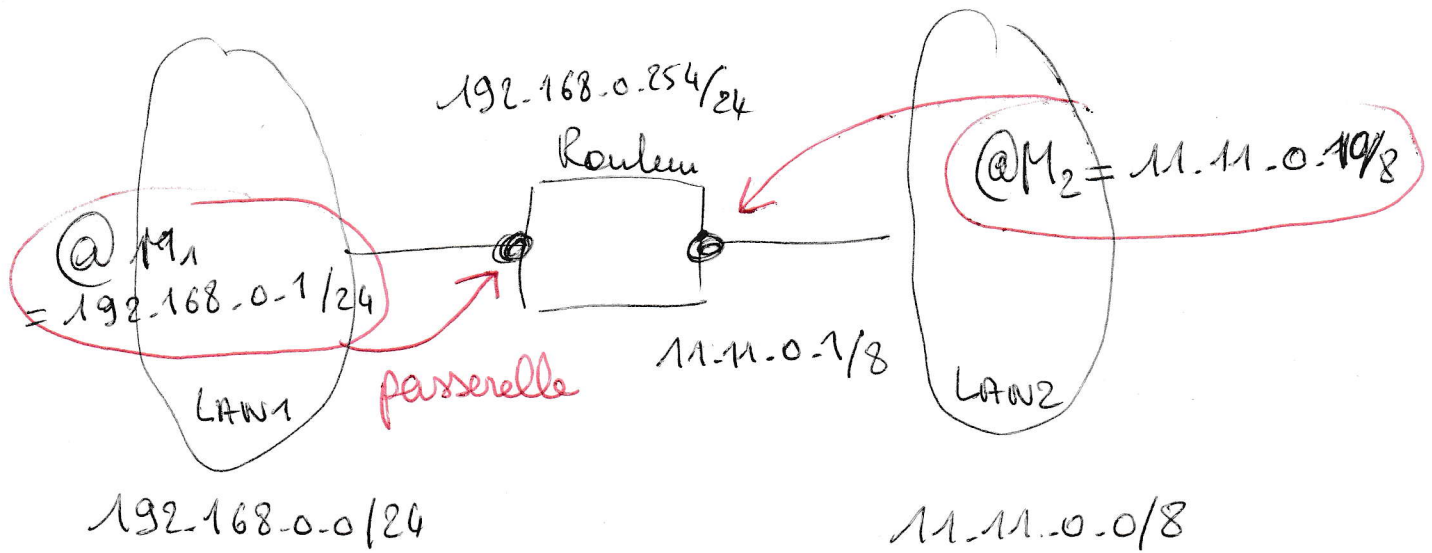 192.168.0.254/24
Routeur
@M2 = 11.11.0.10/8
@M1
= 192.168.0.1/24
passerelle
11.11.0.1/8
LAN1
LAN2
192.168.0.0/24
11.11.0.0/8